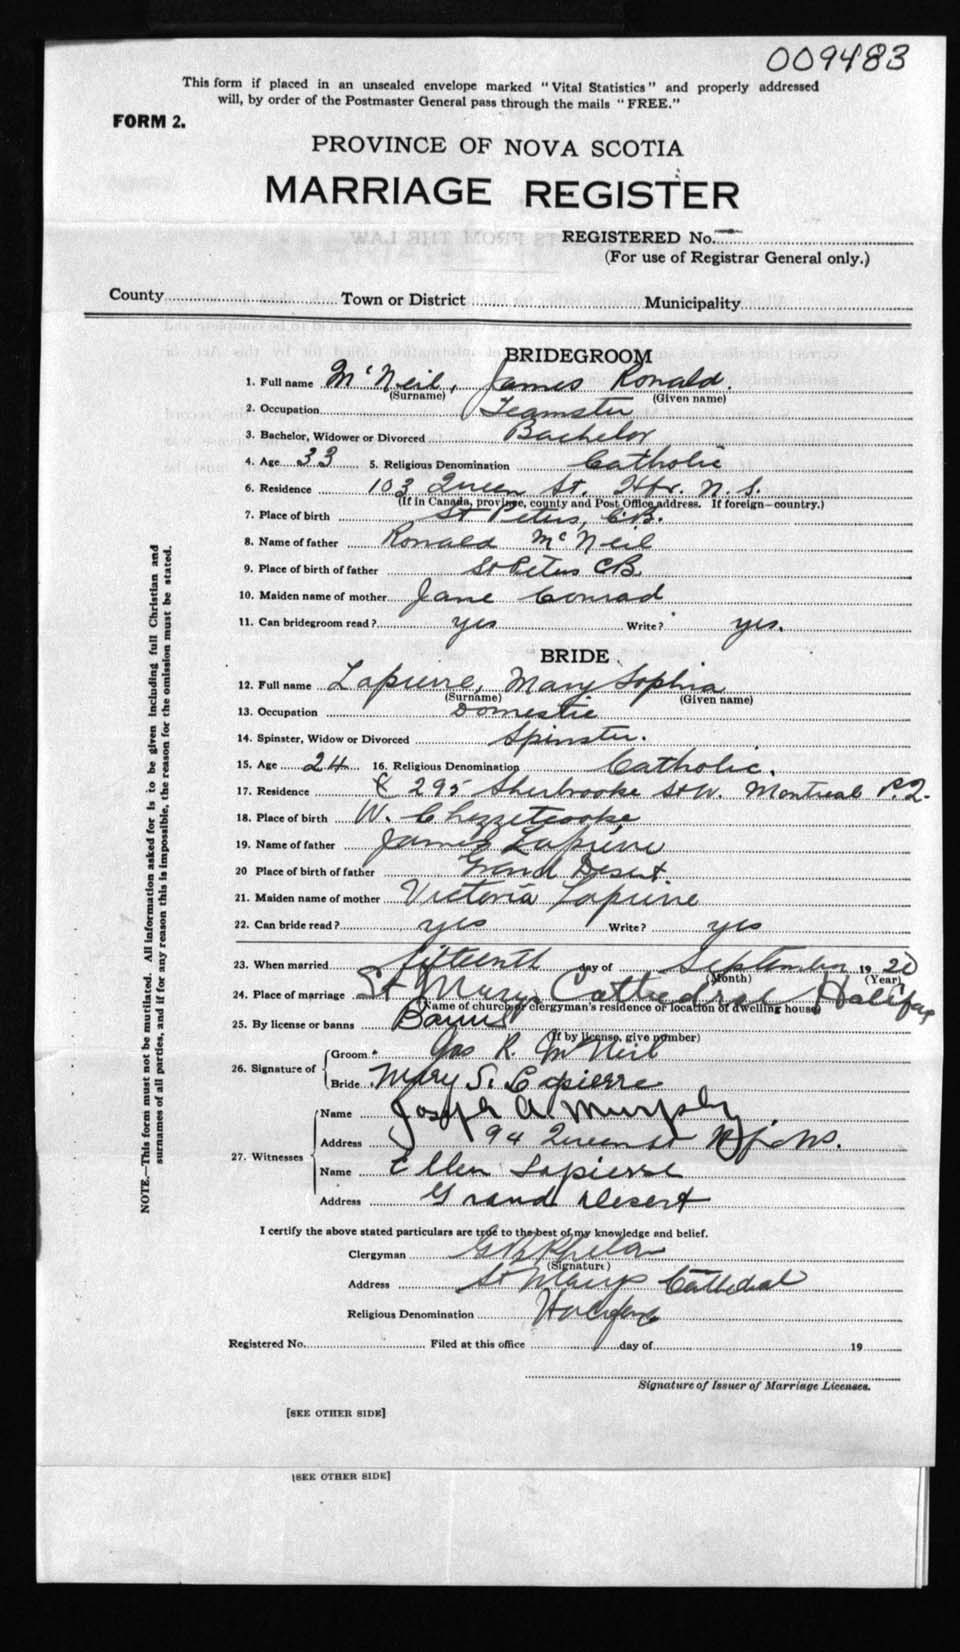 009483
This form if placed in an unsealed envelope marked "Vital Statistics" and properly addressed
will, by order of the Postmaster General pass through the mails "FREE."
FORM 2.
PROVINCE OF NOVA SCOTIA
MARRIAGE REGISTER
REGISTERED No.
(For use of Registrar General only.)
County Town or District Municipality
BRIDEGROOM
1. Full name McNeil, James Ronald.
(Surname) (Given name)
2. Occupation Teamster
3. Bachelor, Widower or Divorced Bachelor
4. Age 33 5. Religious Denomination Catholic
6. Residence 103 Queen St. Hfx. N.S.
(If in Canada, province, county and Post Office address. If foreign—country.)
7. Place of birth St Peters, C.B.
8. Name of father Ronald McNeil
9. Place of birth of father St Peters CB
10. Maiden name of mother Jane Conrad
11. Can bridegroom read? yes Write? yes.
BRIDE
12. Full name Lapierre, Mary Sophia
(Surname) (Given name)
13. Occupation Domestic
14. Spinster, Widow or Divorced Spinster.
15. Age 24 16. Religious Denomination Catholic.
17. Residence 295 Sherbrooke St W. Montreal P.Q.
18. Place of birth W. Chezzetcooke
19. Name of father James Lapierre
20 Place of birth of father Grand Desert.
21. Maiden name of mother Victoria Lapierre
22. Can bride read? yes Write? yes
23. When married fifteenth day of September 1920
(Month) (Year)
24. Place of marriage St Marys Cathedral Halifax
(Name of church or clergyman's residence or location of dwelling house)
25. By license or banns Banns
(If by license, give number)
26. Signature of
Groom Jas R. McNeil
Bride Mary S. Lapierre
27. Witnesses
Name Joseph A. Murphy
Address 94 Queen St Hfx NS.
Name Ellen Lapierre
Address Grand Desert
I certify the above stated particulars are true to the best of my knowledge and belief.
Clergyman Phelan
(Signature)
Address St Marys Cathedral
Religious Denomination Halifax
Registered No. Filed at this office day of 19
Signature of Issuer of Marriage Licenses.
[SEE OTHER SIDE]
[SEE OTHER SIDE]
NOTE.—This form must not be mutilated. All information asked for is to be given including full Christian and
surnames of all parties, and if for any reason this is impossible, the reason for the omission must be stated.